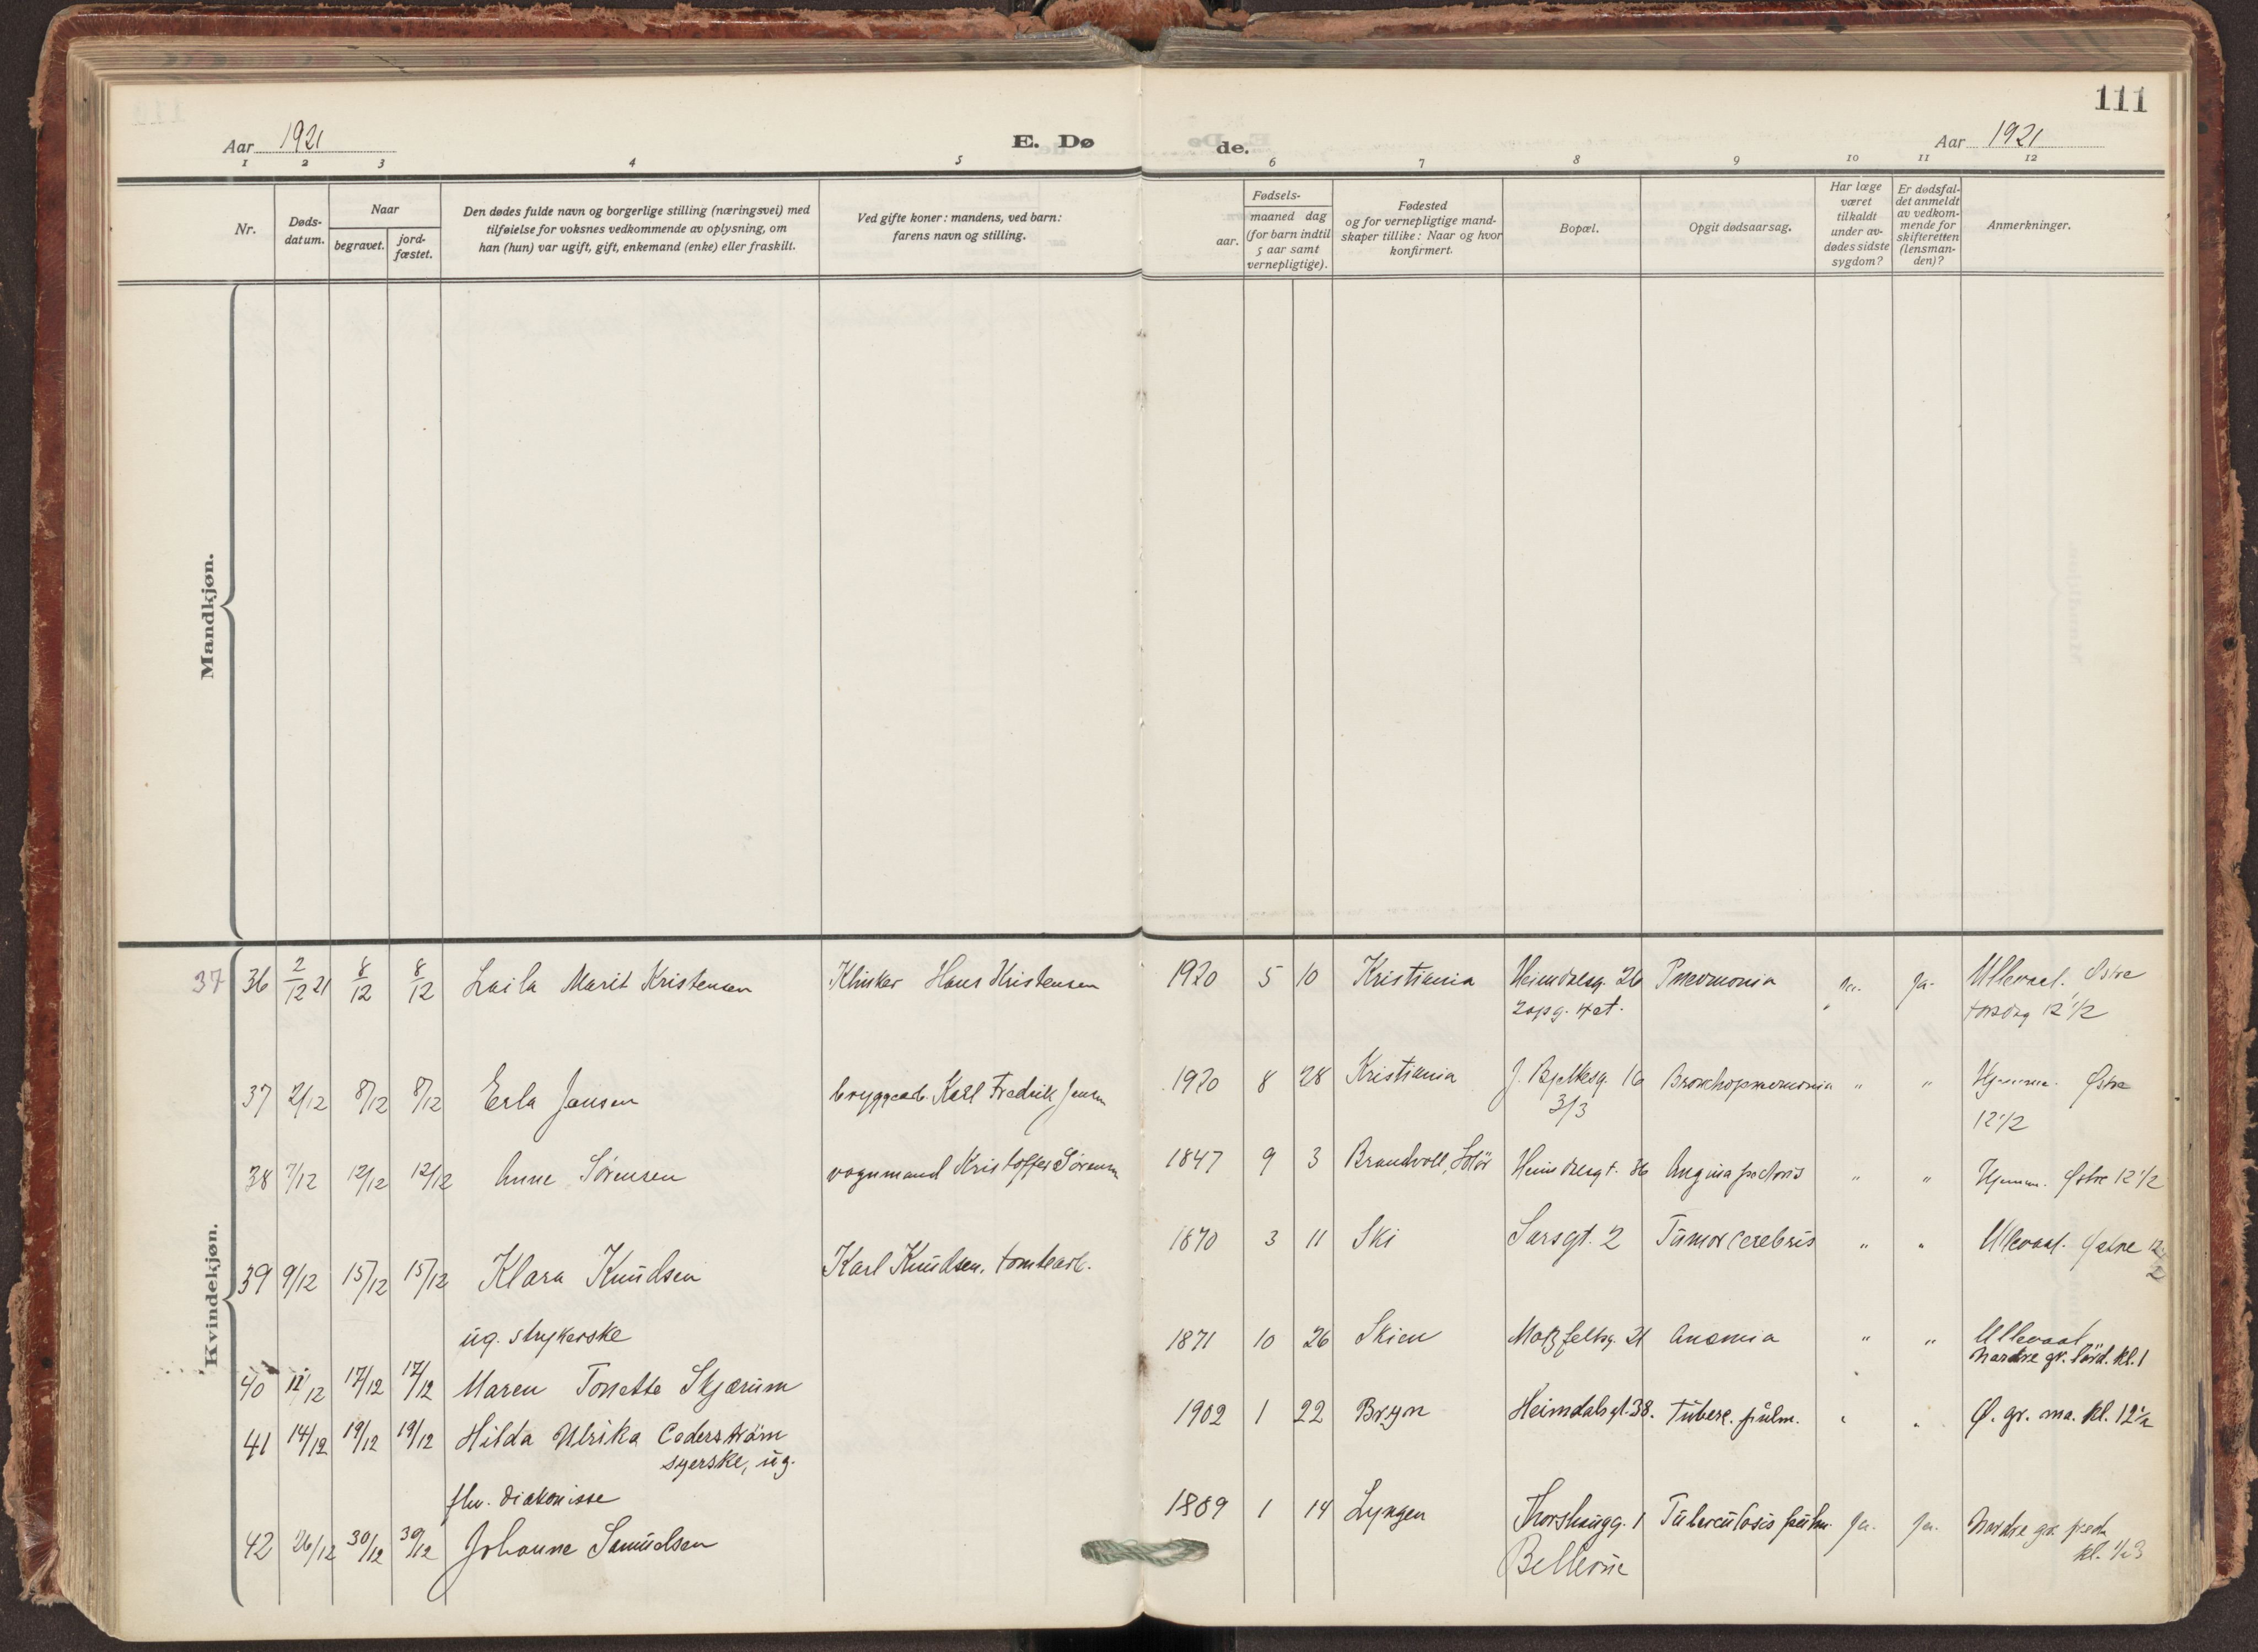 111
Aar 1921
E. Dø
de.
Aar 1921
1 2 3 4 5 6 7 8 9 10 11 12
Nr.
Døds-
datum.
Naar
begravet.
jord-
fæstet.
Den dødes fulde navn og borgerlige stilling (næringsvei) med
tilføielse for voksnes vedkommende av oplysning, om
han (hun) var ugift, gift, enkemand (enke) eller fraskilt.
Ved gifte koner: mandens, ved barn:
farens navn og stilling.
Fødsels-
aar.
maaned dag
(for barn indtil
5 aar samt
vernepligtige).
Fødested
og for vernepligtige mand-
skaper tillike: Naar og hvor
konfirmert.
Bopæl.
Opgit dødsaarsag.
Har læge
været
tilkaldt
under av-
dødes sidste
sygdom?
Er dødsfal-
det anmeldt
av vedkom-
mende for
skifteretten
(lensman-
den)?
Anmerkninger.
Mandkjøn.
Kvindekjøn.
37 36 2/12 21 8/12 8/12 Laila Marit Kristensen Klinker Hans Kristensen 1920 5 10 Kristiania Heimdalsg. 26 Pneomonia Ja. Ullevaal. Østre
2 opg. 4 et. torsdag 12 1/2
37 2/12 8/12 8/12 Erla Jensen bryggearb. Karl Fredrik Jensen 1920 8 28 Kristiania J. Bjelkesg. 16 Bronchopneumonia " " Hjemme. Østre
3/3 12 1/2
38 7/12 12/12 12/12 Anne Sørensen vognmand Kristoffer Sørensen 1847 9 3 Brandvoll, Solør Heimdalsgt. 36 Angina pectoris " " Hjemme. Østre 12 1/2
39 9/12 15/12 15/12 Klara Knudsen Karl Knudsen, tomtearb. 1870 3 11 Ski Sarsgt. 2 Tumor cerebris " " Ullevaal. Østre 12 1/2
ug. strykerske
40 11/12 17/12 17/12 Maren Tonette Skjærum 1871 10 26 Skien Motzfeltsg. 21 Anæmia " " Ullevaal
Nordre gr. lörd. kl. 1
41 14/12 19/12 19/12 Hilda Ulrika Cederström 1902 1 22 Bryn Heimdalsgt. 38. Tuberc. pulm. " " Ø. gr. ma. kl. 12 1/2
syerske, ug.
fhv. diakonisse
42 26/12 30/12 30/12 Johanne Samuelsen 1889 1 14 Lyngen Thorshaugg. 1 Tuberculosis pulm. Ja. Ja. Nordre gr. fred.
Bellevue kl. 1/2 3